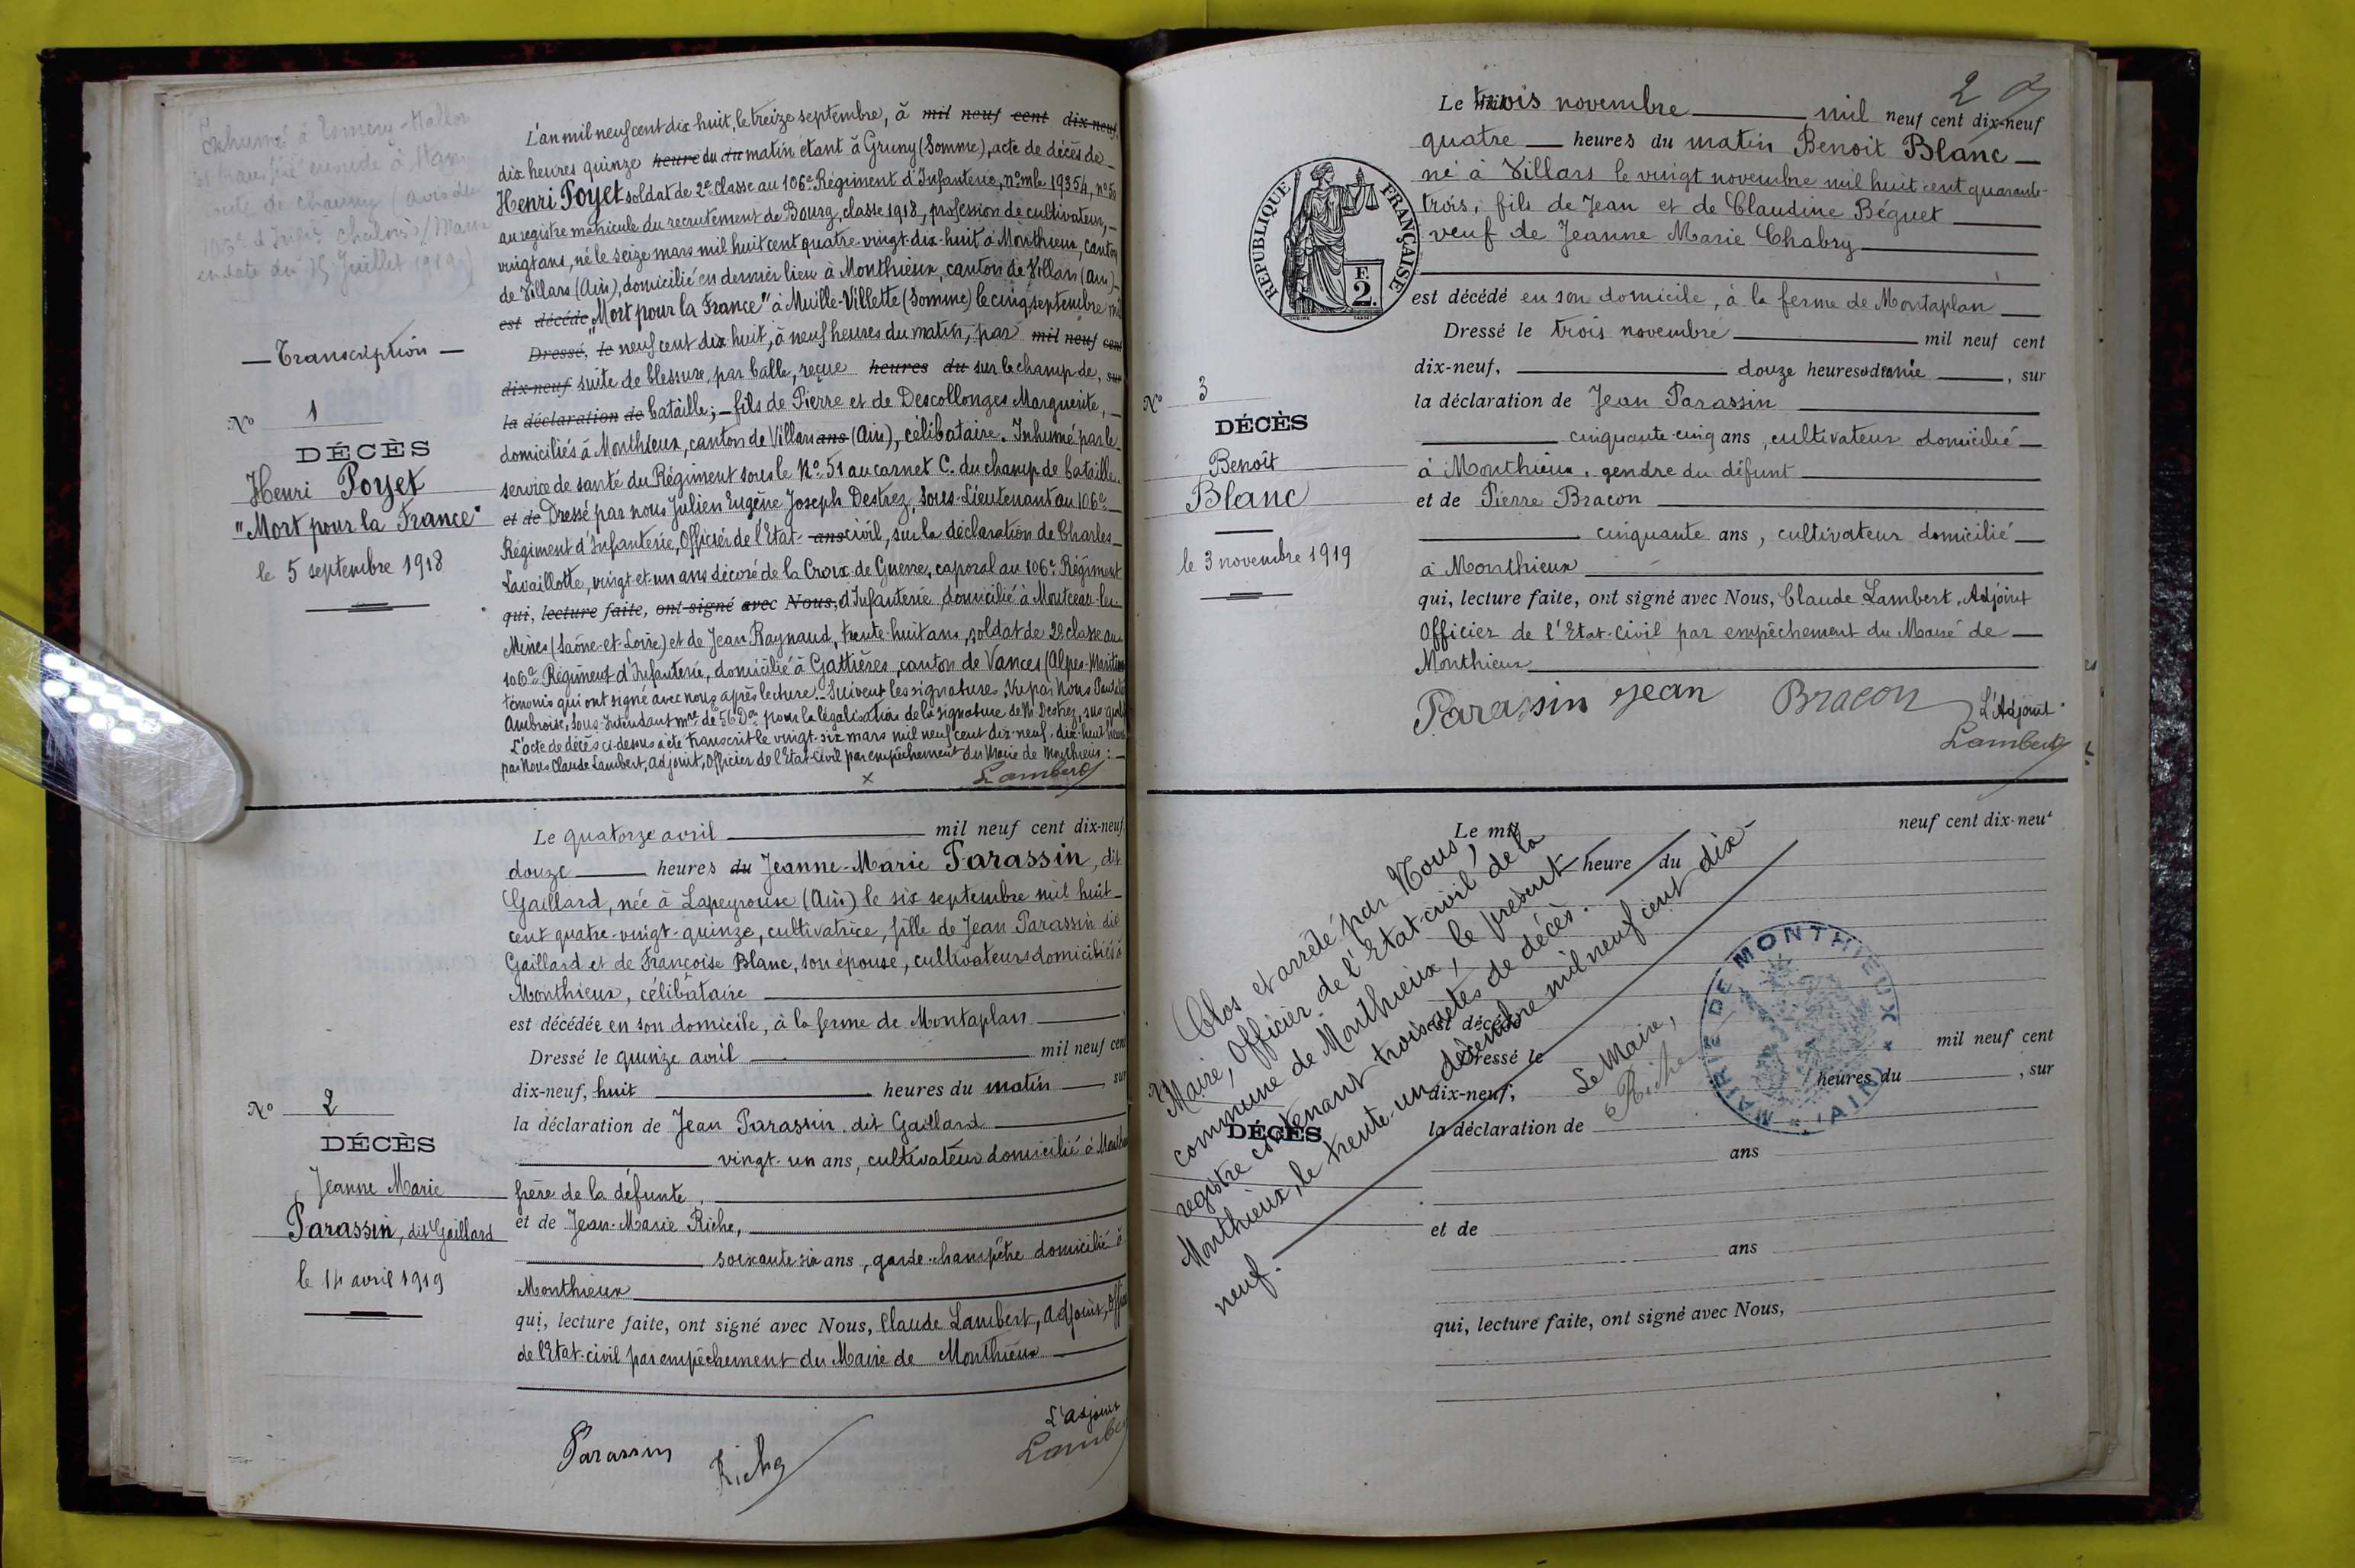 Inhumé à Esmery-Hallon
à Ham
de Chauny (avis du
106e d'Infie Chalons s/Marne
en date du 15 Juillet 1919)
— Transcription —
No 1
DÉCÈS
Henri Poyet
"Mort pour la France"
le 5 septembre 1918
L'an mil neuf cent dix huit, le treize septembre, à mil neuf cent dix-neuf,
dix heures quinze heure du du matin étant à Gruny (Somme), acte de décès de
Henri Poyet soldat de 2e classe au 106e Régiment d'Infanterie, no mle 19354, no
au registre matricule du recrutement de Bourg, classe 1918, profession de cultivateur,
vingt ans, né le seize mars mil huit cent quatre-vingt-dix-huit à Monthieux, canton
de Villars (Ain), domicilié en dernier lieu à Monthieux, canton de Villars (Ain)
est décédé "Mort pour la France" à Muille-Villette (Somme) le cinq septembre mil
Dressé, le neuf cent dix huit, à neuf heures du matin, par mil neuf cent
dix-neuf suite de blessure, par balle, reçue heures du sur le champ de, sur
la déclaration de bataille; — fils de Pierre et de Descollonges Marguerite,
domiciliés à Monthieux, canton de Villars ans (Ain), célibataire. Inhumé par le
service de santé du Régiment sous le No 51 au carnet C. du champ de bataille.
et de Dressé par nous Julien Eugène Joseph Destrez, Sous-Lieutenant au 106e
Régiment d'Infanterie, Officier de l'Etat- ans civil, sur la déclaration de Charles
Lavaillotte, vingt-et-un ans décoré de la Croix de Guerre, caporal au 106e Régiment
qui, lecture faite, ont signé avec Nous, d'Infanterie domicilié à Montceau-les-
Mines (Saône-et-Loire) et de Jean Raynaud, trente-huit ans, soldat de 2e classe au
106e Régiment d'Infanterie, domicilié à Gattières, canton de Vances (Alpes-Maritimes
témoins qui ont signé avec nous après lecture. Suivent les signatures. Vu par Nous
Ambroise, Sous-Intendant mre de 56 Don pour la légalisation de la signature de M. Destrez, sus-qual
L'acte de décès ci-dessus a été transcrit le vingt-six mars mil neuf cent dix-neuf, dix-huit heures
par Nous Claude Lambert, adjoint, Officier de l'Etat-Civil par empêchement du Maire de Monthieux : —
x Lambert
No 2
DÉCÈS
Jeanne Marie
Parassin, dit Gaillard
le 14 avril 1919
Le quatorze avril mil neuf cent dix-neuf
douze heures du Jeanne-Marie Parassin, dit
Gaillard, née à Lapeyrouse (Ain) le six septembre mil huit
cent quatre-vingt-quinze, cultivatrice, fille de Jean Parassin dit
Gaillard et de Françoise Blanc, son épouse, cultivateurs domiciliés à
Monthieux, célibataire
est décédée en son domicile, à la ferme de Montaplan
Dressé le quinze avril mil neuf cent
dix-neuf, huit heures du matin, sur
la déclaration de Jean Parassin, dit Gaillard
vingt-un ans, cultivateur domicilié à
frère de la défunte,
et de Jean-Marie Riche,
soixante-six ans, garde-champêtre domicilié à
Monthieux
qui, lecture faite, ont signé avec Nous, Claude Lambert, adjoint,
de l'Etat-civil par empêchement du Maire de Monthieux
L'adjoint
Parassin Riche Lambert
2
RÉPUBLIQUE FRANÇAISE
F.
2.
No 3
DÉCÈS
Benoît
Blanc
le 3 novembre 1919
Le trois novembre mil neuf cent dix-neuf
quatre heures du matin Benoit Blanc
né à Villars le vingt novembre mil huit cent quarante-
trois, fils de Jean et de Claudine Béguet
veuf de Jeanne Marie Chabry
est décédé en son domicile, à la ferme de Montaplan
Dressé le trois novembre mil neuf cent
dix-neuf, douze heures et demie, sur
la déclaration de Jean Parassin
cinquante-cinq ans, cultivateur domicilié
à Monthieux, gendre du défunt
et de Pierre Bracon
cinquante ans, cultivateur domicilié
à Monthieux
qui, lecture faite, ont signé avec Nous, Claude Lambert, Adjoint
Officier de l'Etat-Civil par empêchement du Maire de
Monthieux
Parassin Jean Bracon L'Adjoint
Lambert
Le mil neuf cent dix-neuf
heure du
est décédé
Dressé le mil neuf cent
dix-neuf, heures du , sur
No
DÉCÈS
la déclaration de
ans
et de
ans
qui, lecture faite, ont signé avec Nous,
Clos et arrêté par Nous,
Maire, Officier de l'Etat-civil de la
commune de Monthieux, le présent
registre contenant trois actes de décès.
Monthieux, le trente-un décembre mil neuf cent dix-
neuf.
Le Maire,
Riche
MAIRIE DE MONTHIEUX
(AIN)